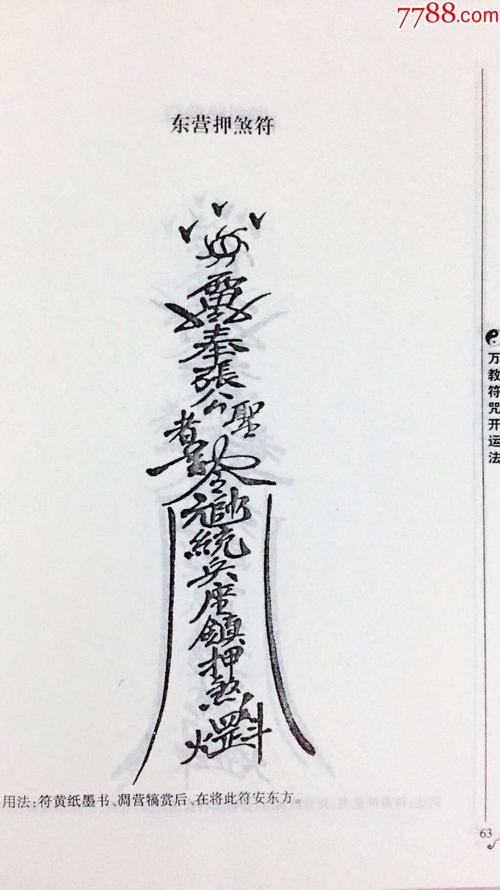 7788.com
东营押煞符
奉
張
公聖
者
令
統
兵
座
鎮
押
煞
罡斗
用法:符黄纸墨书、凋营犒赏后、在将此符安东方。
万教符咒开运法
63